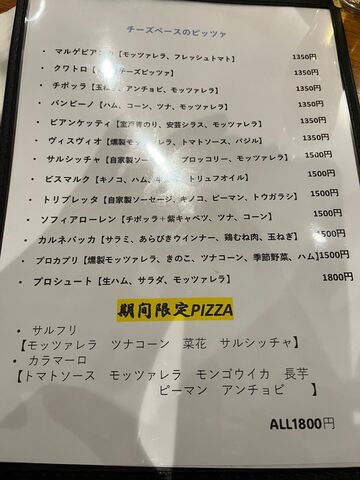 チーズベースのピッツァ
・ マルゲビアンカ【モッツァレラ、フレッシュトマト】 1350円
・ クワトロ【チーズピッツァ】 1350円
・ チポッラ【玉ねぎ、アンチョビ、モッツァレラ】 1350円
・ バンビーノ【ハム、コーン、ツナ、モッツァレラ】 1350円
・ ビアンケッティ【室戸青のり、安芸シラス、モッツァレラ】 1350円
・ ヴィスヴィオ【燻製モッツァレラ、トマトソース、バジル】 1350円
・ サルシッチャ【自家製ソーセージ、ブロッコリー、モッツァレラ】 1500円
・ ビスマルク【キノコ、ハム、トリュフオイル】 1500円
・ トリプレッタ【自家製ソーセージ、キノコ、ピーマン、トウガラシ】 1500円
・ ソフィアローレン【チポッラ+紫キャベツ、ツナ、コーン】 1500円
・ カルネバッカ【サラミ、あらびきウインナー、鶏むね肉、玉ねぎ】 1500円
・ プロカプリ【燻製モッツァレラ、きのこ、ツナコーン、季節野菜、ハム】1500円
・ プロシュート【生ハム、サラダ、モッツァレラ】 1800円
期間限定PIZZA
・ サルフリ
【モッツァレラ ツナコーン 菜花 サルシッチャ】
・ カラマーロ
【トマトソース モッツァレラ モンゴウイカ 長芋
ピーマン アンチョビ 】
ALL1800円